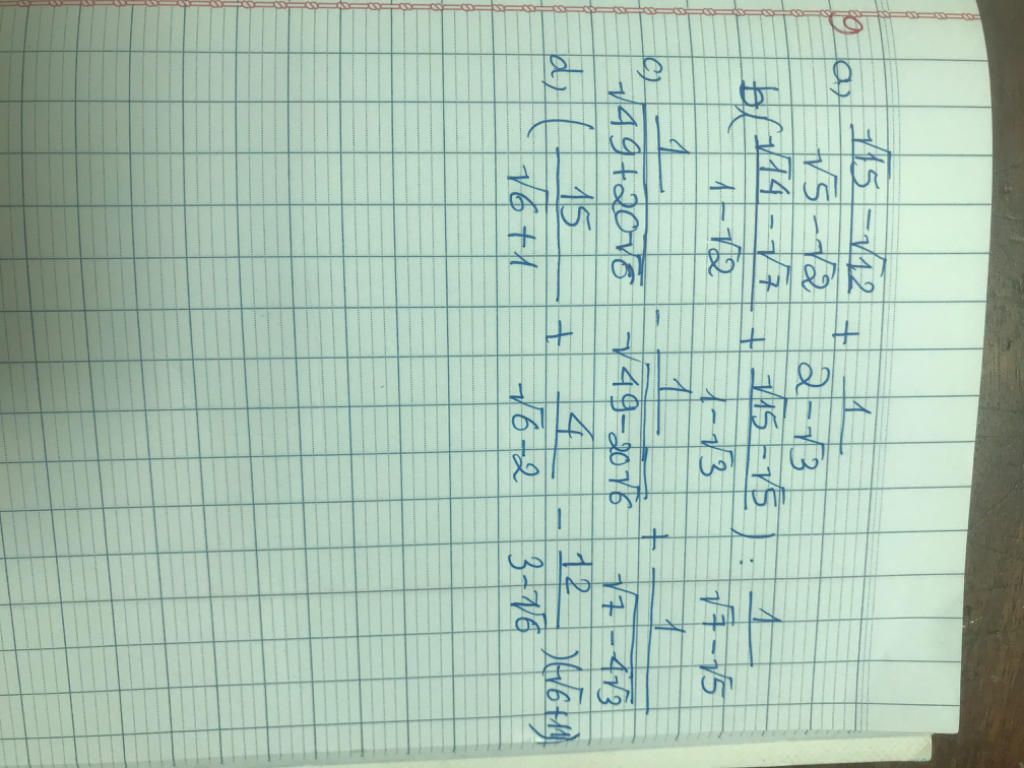 9
a) (√15 - √12)/(√5 - √2) + 1/(2 - √3)
b) ((√14 - √7)/(1 - √2) + (√15 - √5)/(1 - √3)) : 1/(√7 - √5)
c) 1/√(49 + 20√6) - 1/√(49 - 20√6) + 1/√(7 - 4√3)
d) (15/(√6 + 1) + 4/(√6 - 2) - 12/(3 - √6))(√6 + 11)